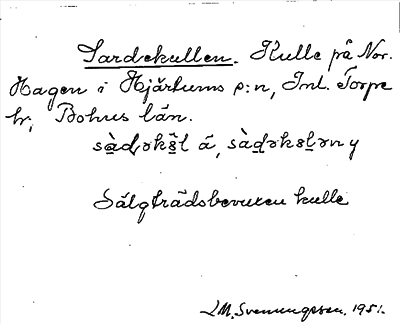 Sardekullen. Kulle på Nor.
Hagen i Hjärtums s:n, Inl. Torpe
hr, Bohus län.
Sälgträdsbevuxen kulle
J.M. Svenungsson. 1951.